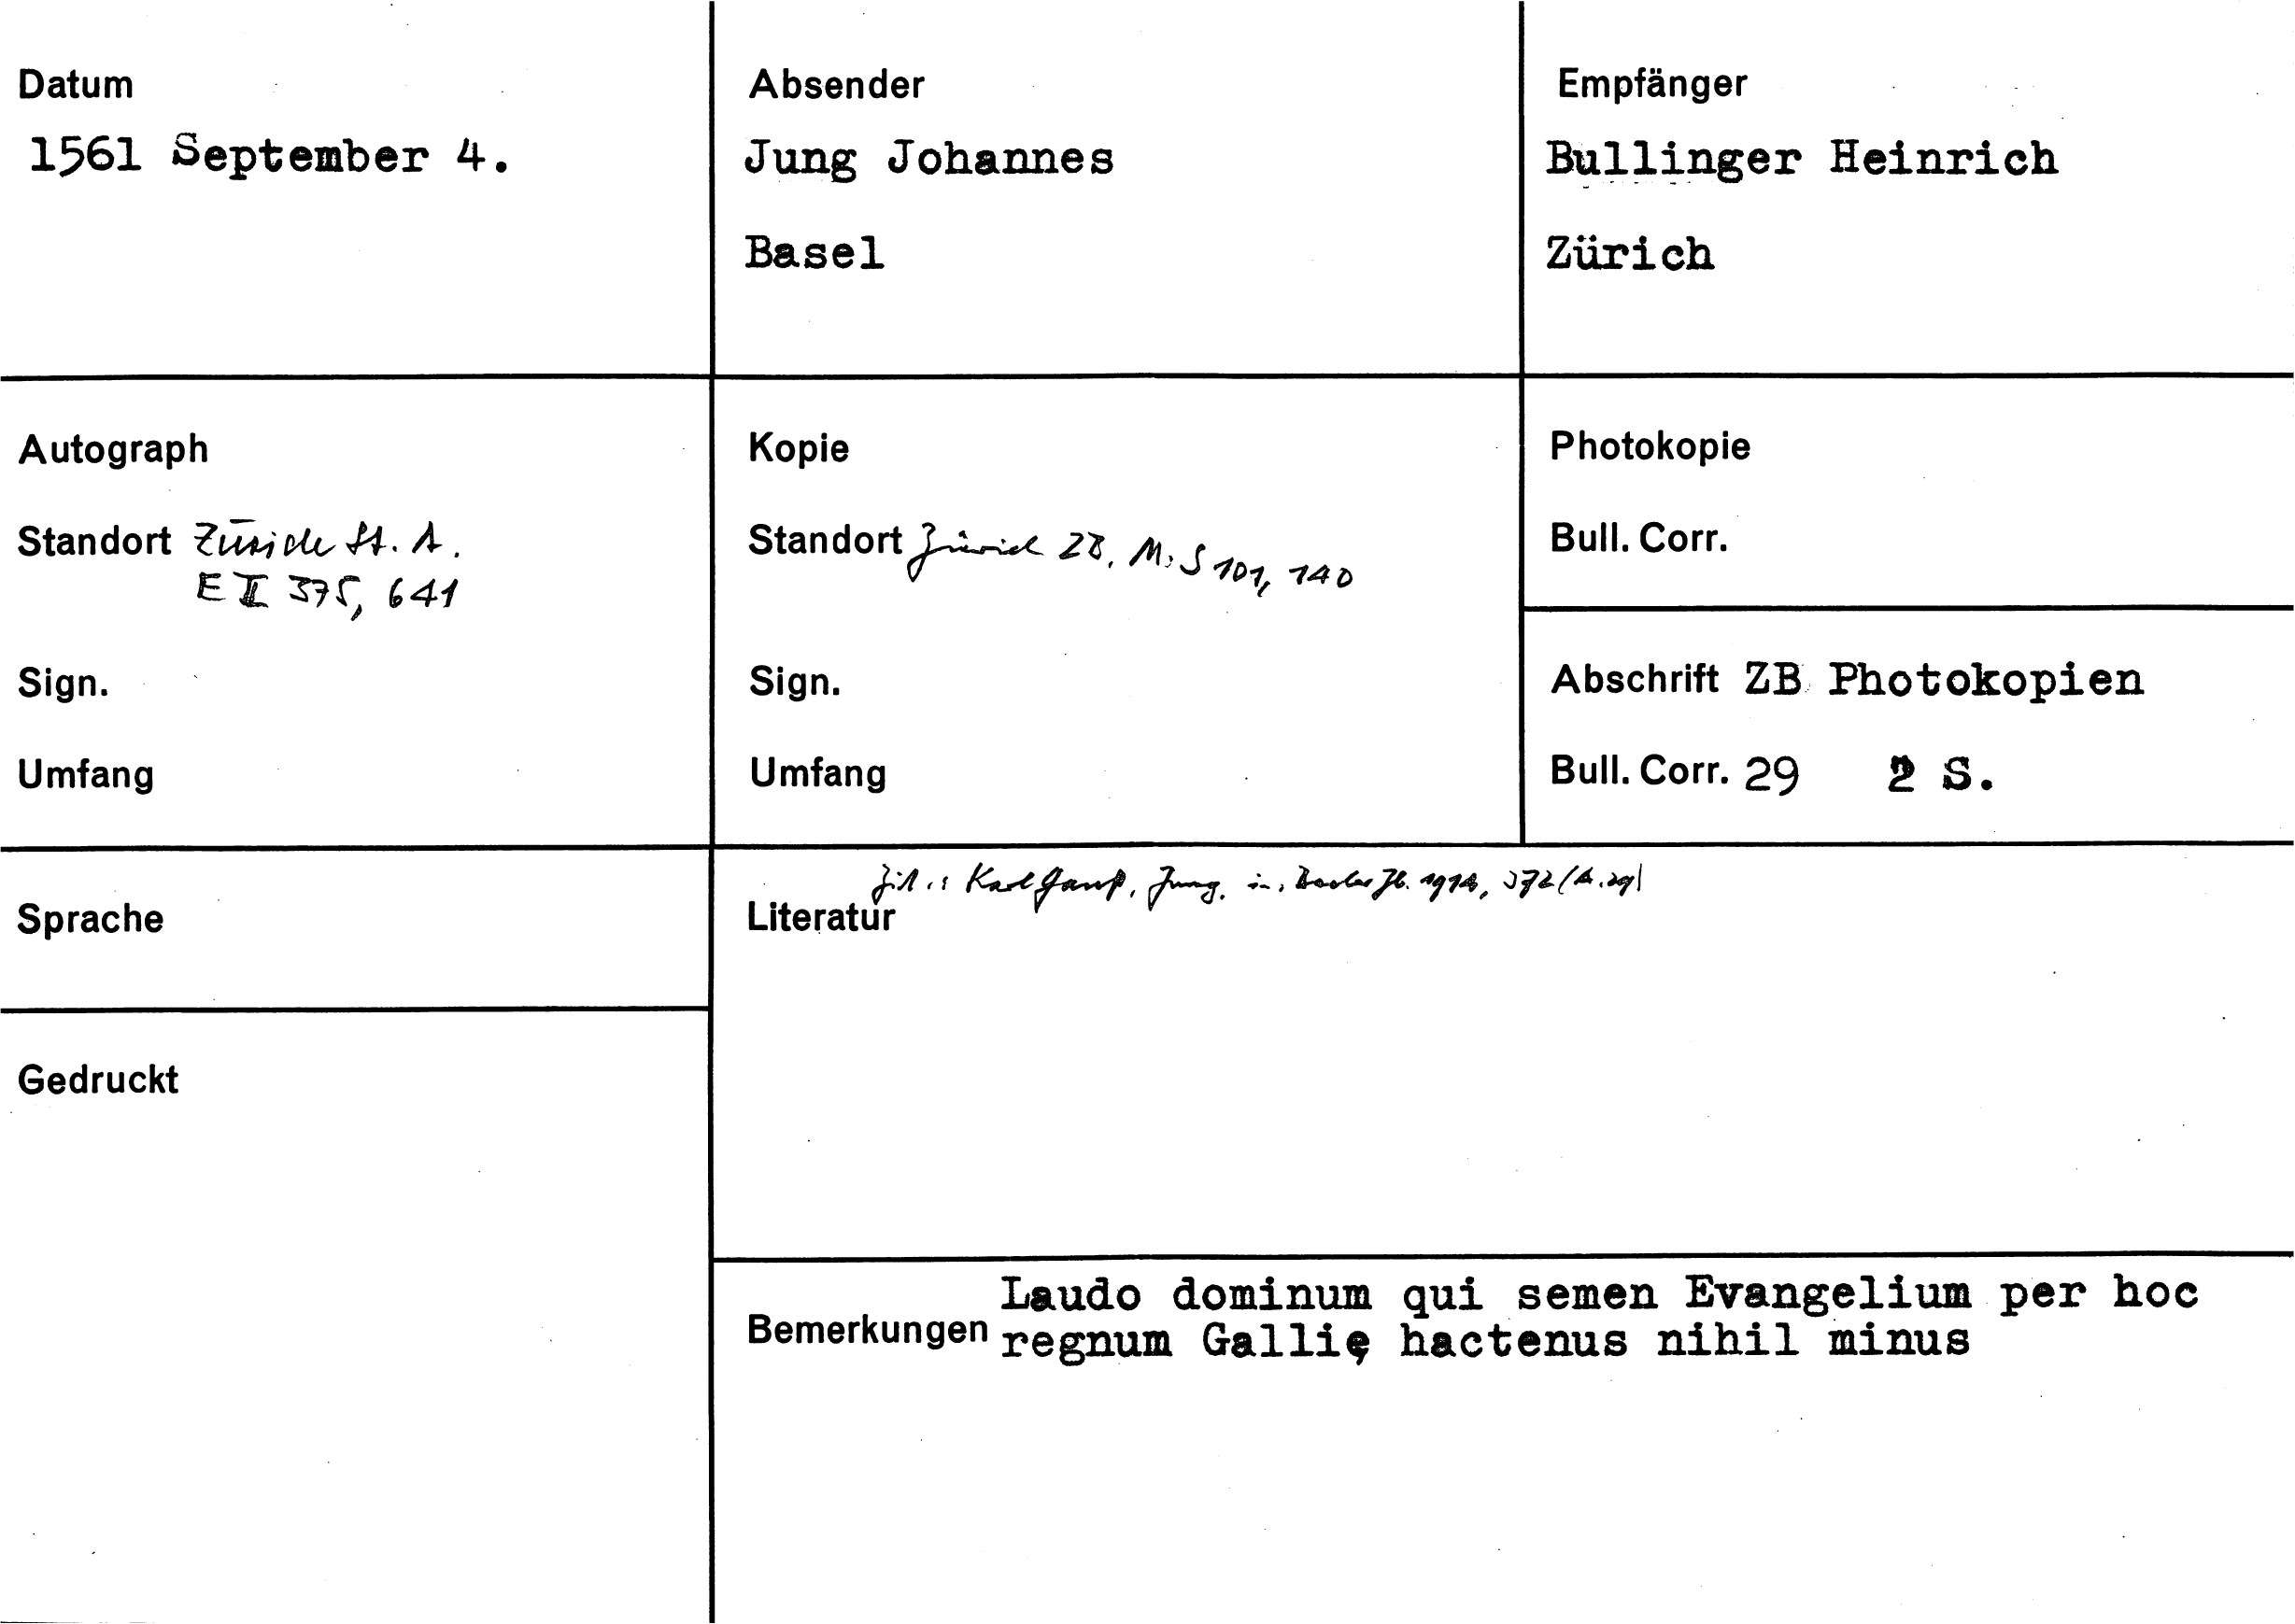 Datum
1561 September 4.
Absender
Jung Johannes
Basel
Empfänger
Bullinger Heinrich
Zürich
Autograph
Standort Zürich St. A.
E II 375, 641
Sign.
Umfang
Kopie
Standort Zürich ZB, Ms S 101, 140
Sign.
Umfang
Photokopie
Bull. Corr.
Abschrift ZB Photokopien
Bull. Corr. 29 2 S.
Sprache
Gedruckt
Zit.: Karl Gauß, Jung, in: Basler Jb. 372 (A. 29)
Literatur
Bemerkungen Laudo dominum qui semen Evangelium per hoc
regnum Gallię hactenus nihil minus